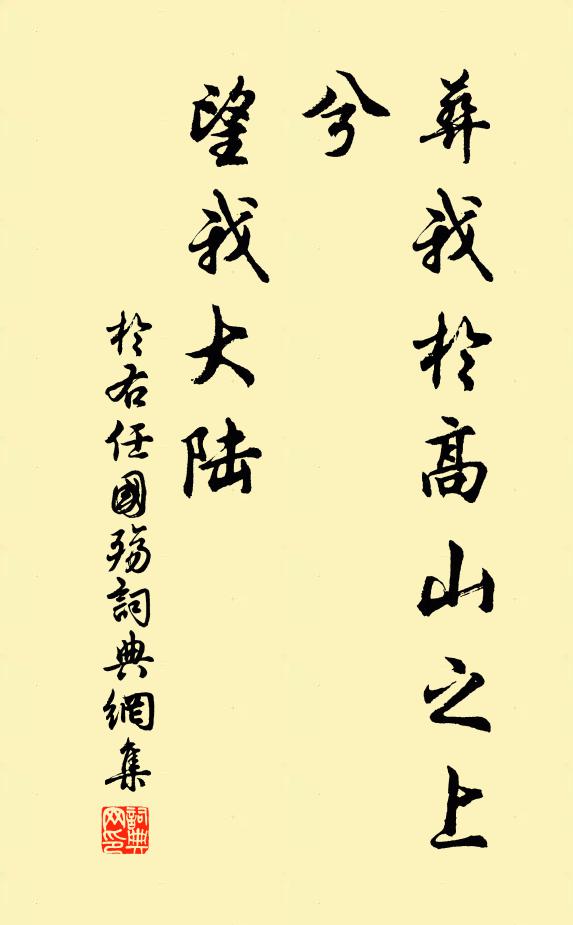 葬我於高山之上
兮
望我大陆
於右任國殤詞典網集
詞典
网印